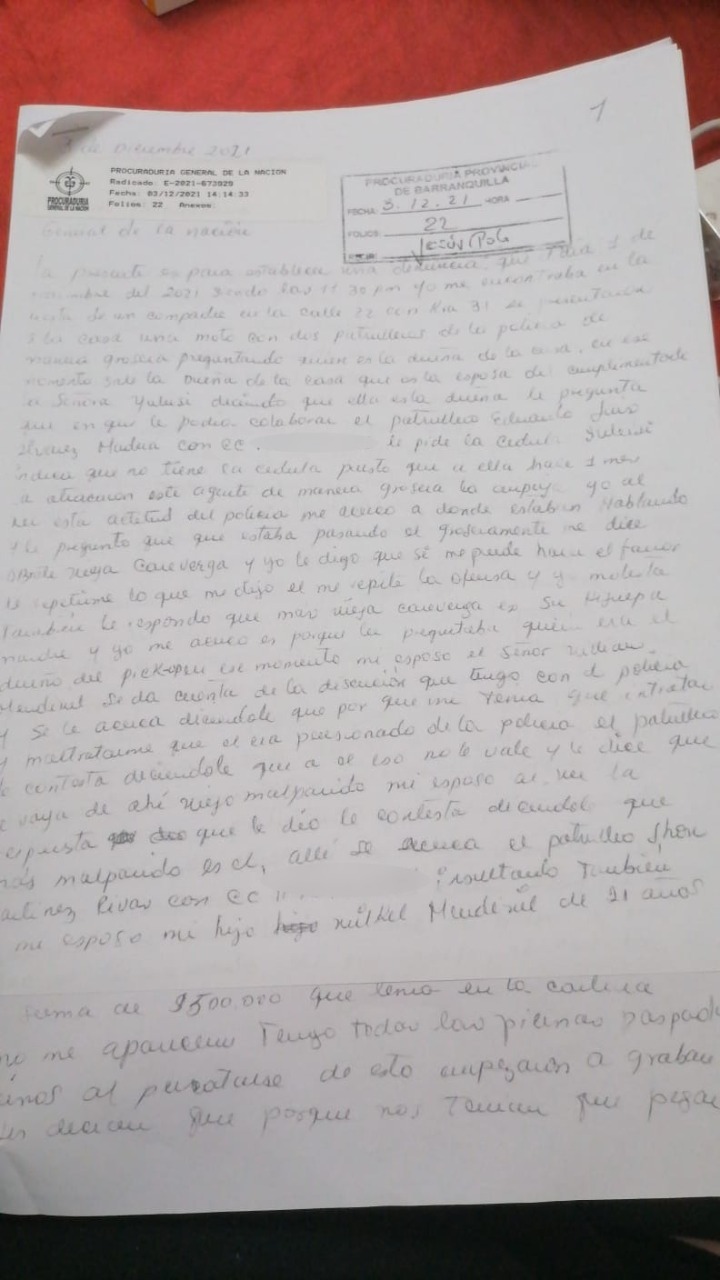 1
de Diciembre 2021
PROCURADURIA GENERAL DE LA NACION
Radicado: E-2021-673929
Fecha: 03/12/2021 14:14:33
Folios: 22 Anexos:
PROCURADURIA
GENERAL DE LA NACION
PROCURADURIA PROVINCIAL
DE BARRANQUILLA
FECHA: 3.12.21 HORA
FOLIOS: 22
General de la nación
la presente es para establecer una denuncia que el día 1 de
del 2021 siendo las 11 30 pm yo me encontraba en la
de un compadre en la calle 22 con Kra 31 se presentaron
a la casa una moto con dos patrulleros de la policia de
manera grosera preguntando quien es la dueña de la casa, en ese
momento sale la Dueña de la casa que es la esposa de
Señora diciendo que ella es la dueña le pregunta
que en que le podia colaborar el patrullero Eduardo
Alvarez con CC. le pide la Cedula
indica que no tiene su cedula puesto que a ella hace 1 mes
la atracaron este agente de manera grosera la empuja yo al
ver esta actitud del policia me acerco a donde estaban Hablando
y le pregunto que que estaba pasando el groseramente me dice
vieja Careverga y yo le digo que si me puede hacer el favor
de repetirme lo que me dijo el me repite la ofensa y yo molesta
Tambien le respondo que mas vieja careverga es su
madre y yo me acerco es porque les preguntaba quien era el
dueño del pickopen ese momento mi esposo el Señor
Mendinil se da cuenta de la discusión que tengo con el policia
y se le acerca diciendole que por que me tenia que
y maltratarme que el era pensionado de la policia el patrullero
le contesta diciendole que a el eso no le vale y le dice que
se vaya de ahí viejo malparido mi esposo al ver la
respuesta que le dio le contesta diciendole que
más malparido es el, alli se acerca el patrullero
Martinez Rivas con CC insultando Tambien
mi esposo mi hijo Mendinil de 21 años
suma de $500.000 que tenia en la cartera
no me aparecieron Tengo todas las piernas
al percatarse de esto empezaron a grabar
les decian que porque nos tenian que pegar